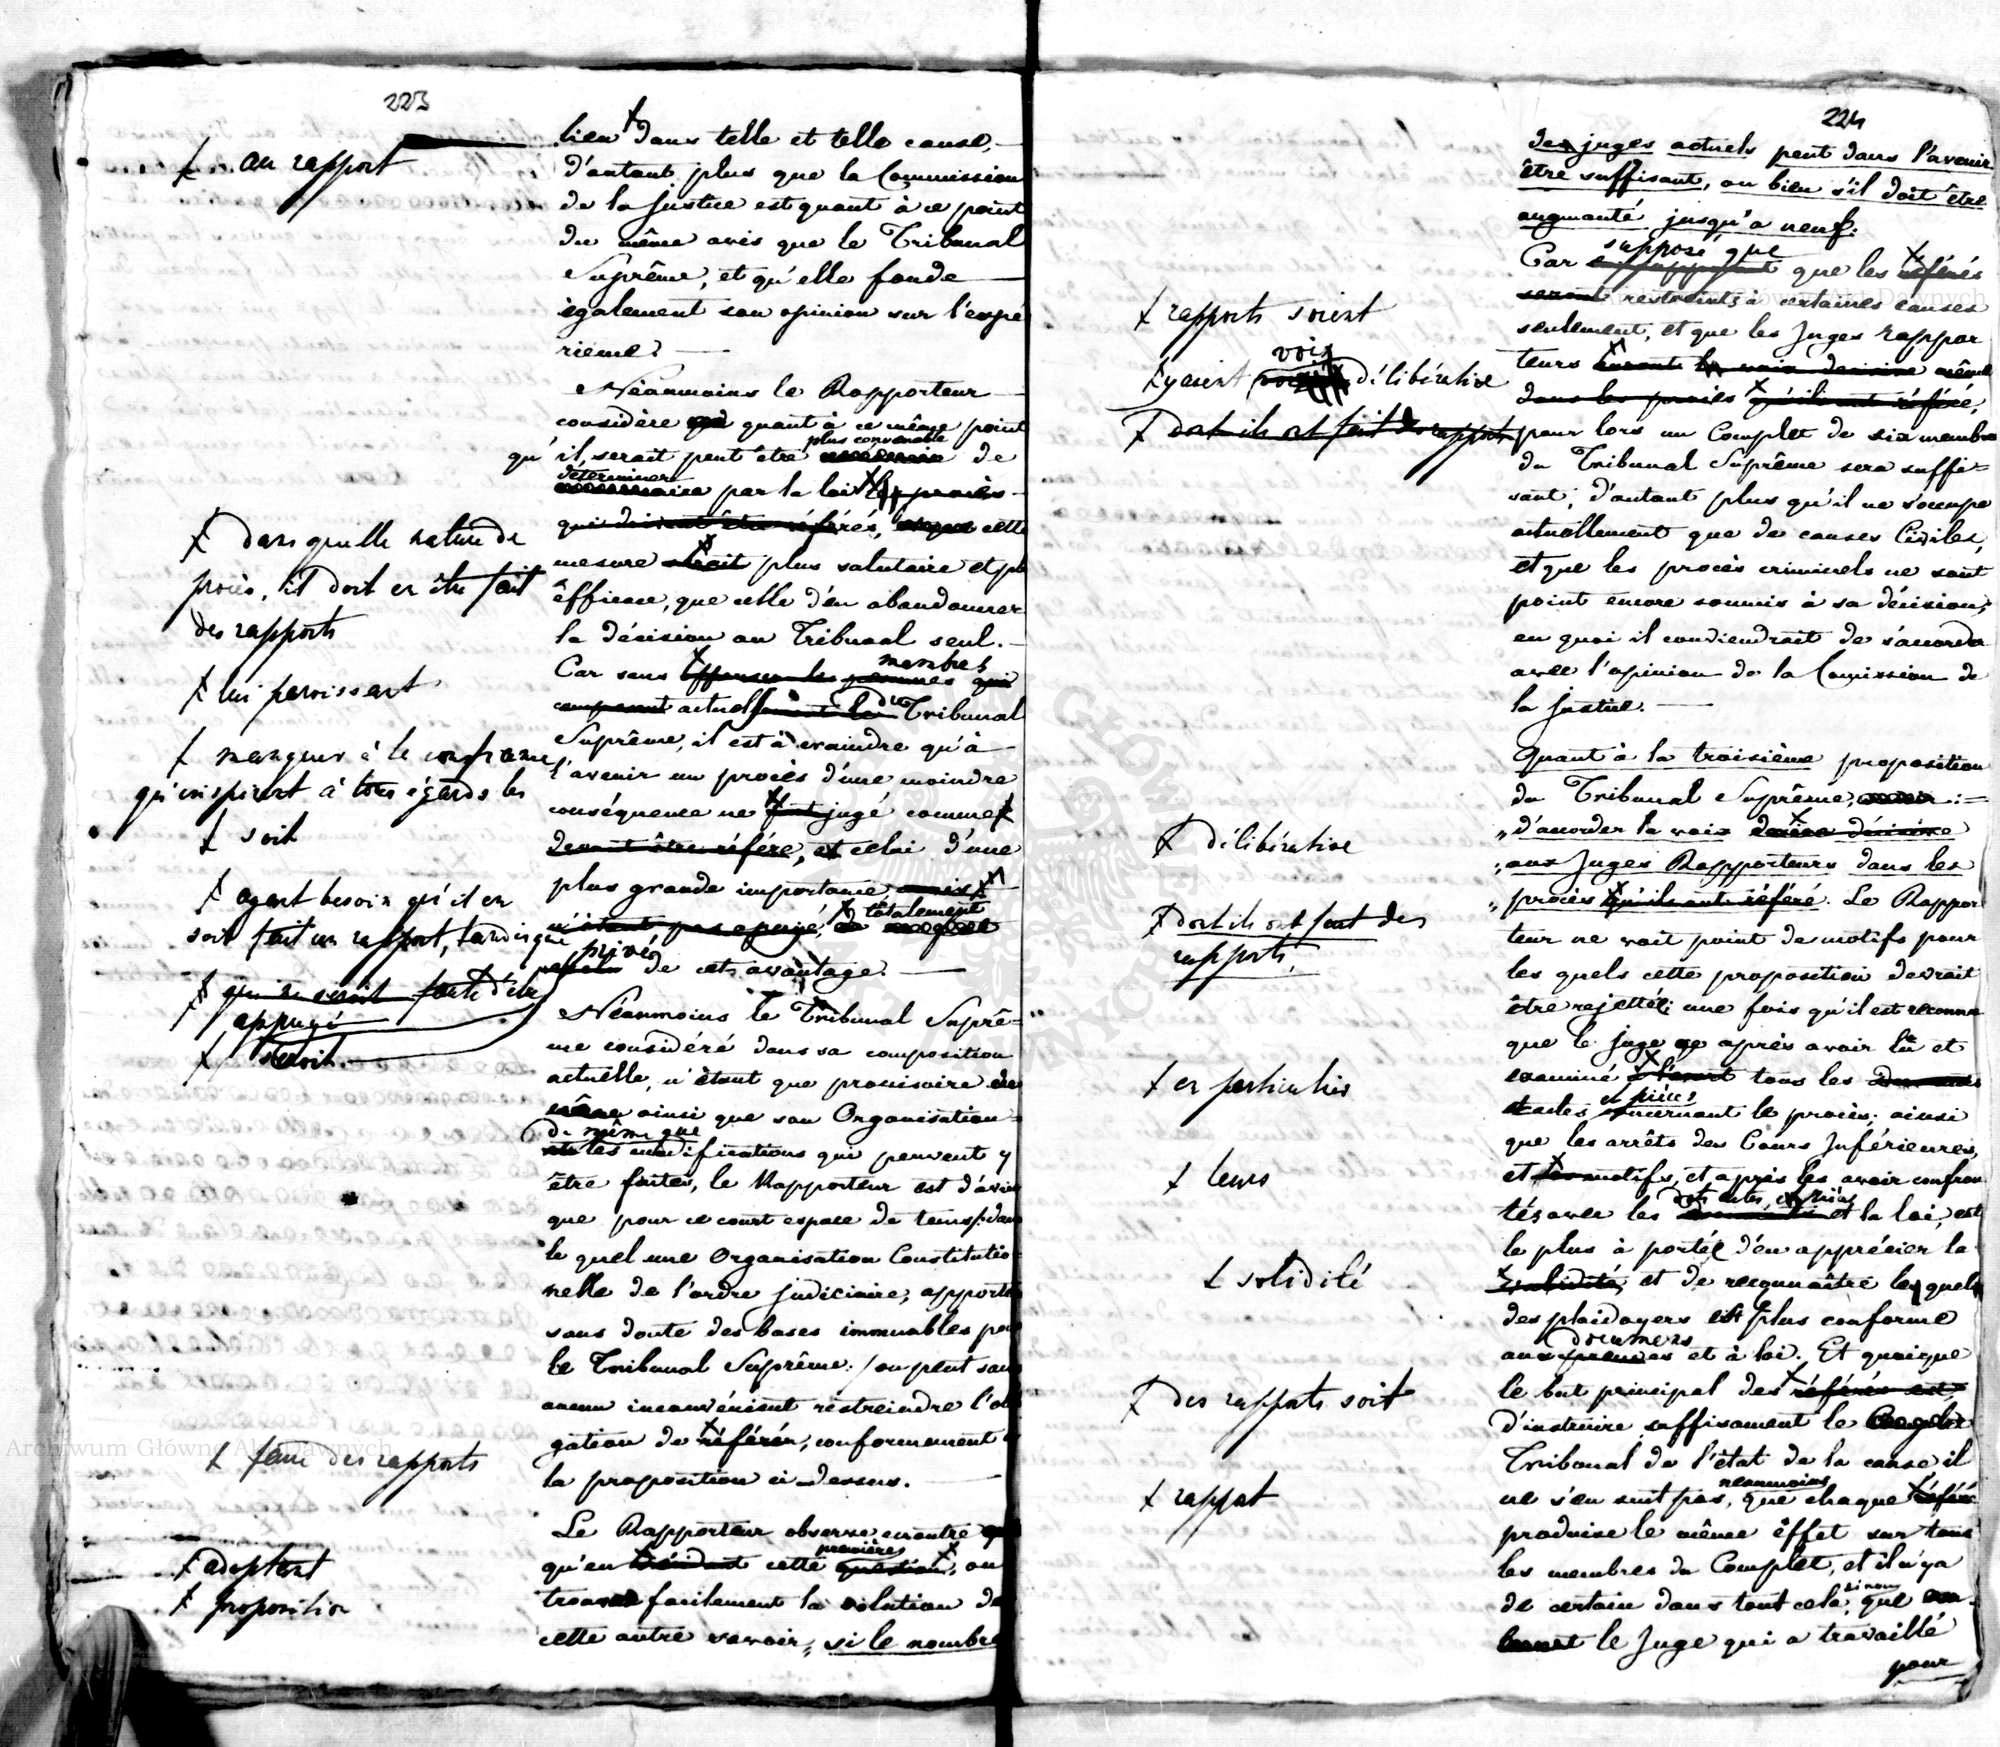 223
ɫ au rapport
ɫ dans quelle nature de
procès, il doit en être fait
des rapports
ɫ lui paroissent
ɫ manquer à la confiance
qu'inspirent à tous égards les
ɫ soit
ɫ ayant besoin qu'il en
soit fait un rapport, tandis que
ɫ qui ne seroit faute d'être
appuyé
ɫ seroit
ɫ faire des rapports
ɫ adoptant
ɫ proposition
lieu ɫ dans telle et telle cause,
d'autant plus que la Commission
de la Justice est quant à ce point
du même avis que le Tribunal
Suprême, et qu'elle fonde
également son opinion sur l'expé
rience.
Néanmoins le Rapporteur
considère quant à ce même point
plus convenable
qu'il serait peut être de
déterminer
par la loi les procès
qui doivent être référés, cette
mesure étoit plus salutaire et plus
éfficace, que celle d'en abandonner
la décision au Tribunal seul.
membres
Car sans offenser les personnes qui
composent actuellement le du Tribunal
Suprême, il est à craindre qu'à
l'avenir un procès d'une moindre
conséquence ne fut jugé comme ɫ
devant être référé, et celui d'une
plus grande importance mais
totalement
n'étant pas appuyé,
privé
de cet avantage.
Néanmoins le Tribunal Suprê=
me considéré dans sa composition
actuelle, n'étant que provisoire de
même ainsi que son Organisation
de même que
les modifications qui peuvent y
être faites, le Rapporteur est d'avis
que pour ce court espace de tems /: dans
le quel une Organisation Constitutio=
nelle de l'ordre judiciaire, apporte
sans doute des bases immuables pour
le Tribunal Suprême :/ on peut sans
aucun inconvénient restreindre l'obli
gation de référer, conformement à
la proposition ci-dessus.
Le Rapporteur observe encontre
première
qu'en décidant cette question, on
trouve facilement la solution de
cette autre savoir, „ si le nombre
224
ɫ rapports soient
voix
ɫ ayent délibérative
ɫ dont ils ont fait des rapports
ɫ délibérative
ɫ dont ils ont fait des
rapports,
ɫ en particulier
ɫ leurs
ɫ solidité
ɫ des rapports soit
ɫ rapport
des juges actuels peut dans l'avenir
être suffisant, ou bien s'il doit être
augmenté jusqu'a neuf.
supposé que
Car que les référés
seront restreints à certaines causes
seulement, et que les Juges rappor
teurs auront la voix decisive même
dans les procès qu'ils ont référé,
pour lors un Complet de six membres
du Tribunal Suprême sera suffi=
sant, d'autant plus qu'il ne s'occupe
actuellement que de causes Civiles,
et que les procès criminels ne sont
point encore soumis à sa décision;
en quoi il conviendrait de s'accorder
avec l'opinion de la Comission de
la Justice.
Quant à la troisième proposition
du Tribunal Suprême, :=
„ d'accorder la voix décisive
„ aux Juges Rapporteurs dans les
„ procès qu'ils ont référé. Le Rappor
teur ne voit point de motifs pour
les quels cette proposition devrait
être rejettée; une fois qu'il est reconnu
que le juge après avoir lû et
examiné à l'écart tous les
et pièces
actes concernant le procès; ainsi
que les arrêts des Cours Inférieures,
et les motifs, et après les avoir confron
dits actes, et pièces
tés avec les et la loi, est
le plus à portée d'en apprécier la
validité, et de reconnaître lequel
des plaidoyers est plus conforme
documens
aux preuves et à loi. Et quoique
le but principal des référés est
d'instruire suffisament le Complet
Tribunal de l'état de la cause il
neanmoins
ne s'en suit pas, que chaque référé
produise le même êffet sur tous
les membres du Complet, et il n'y a
sinon
de certain dans tout cela, que
le Juge qui a travaillé
pour